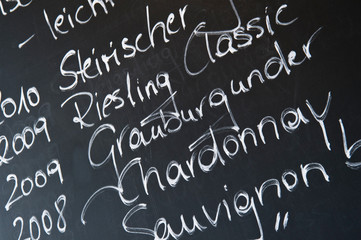 - leicht
2010 Steirischer
2009 Riesling Classic
2009 Grauburgunder
2008 Chardonnay
Sauvignon "